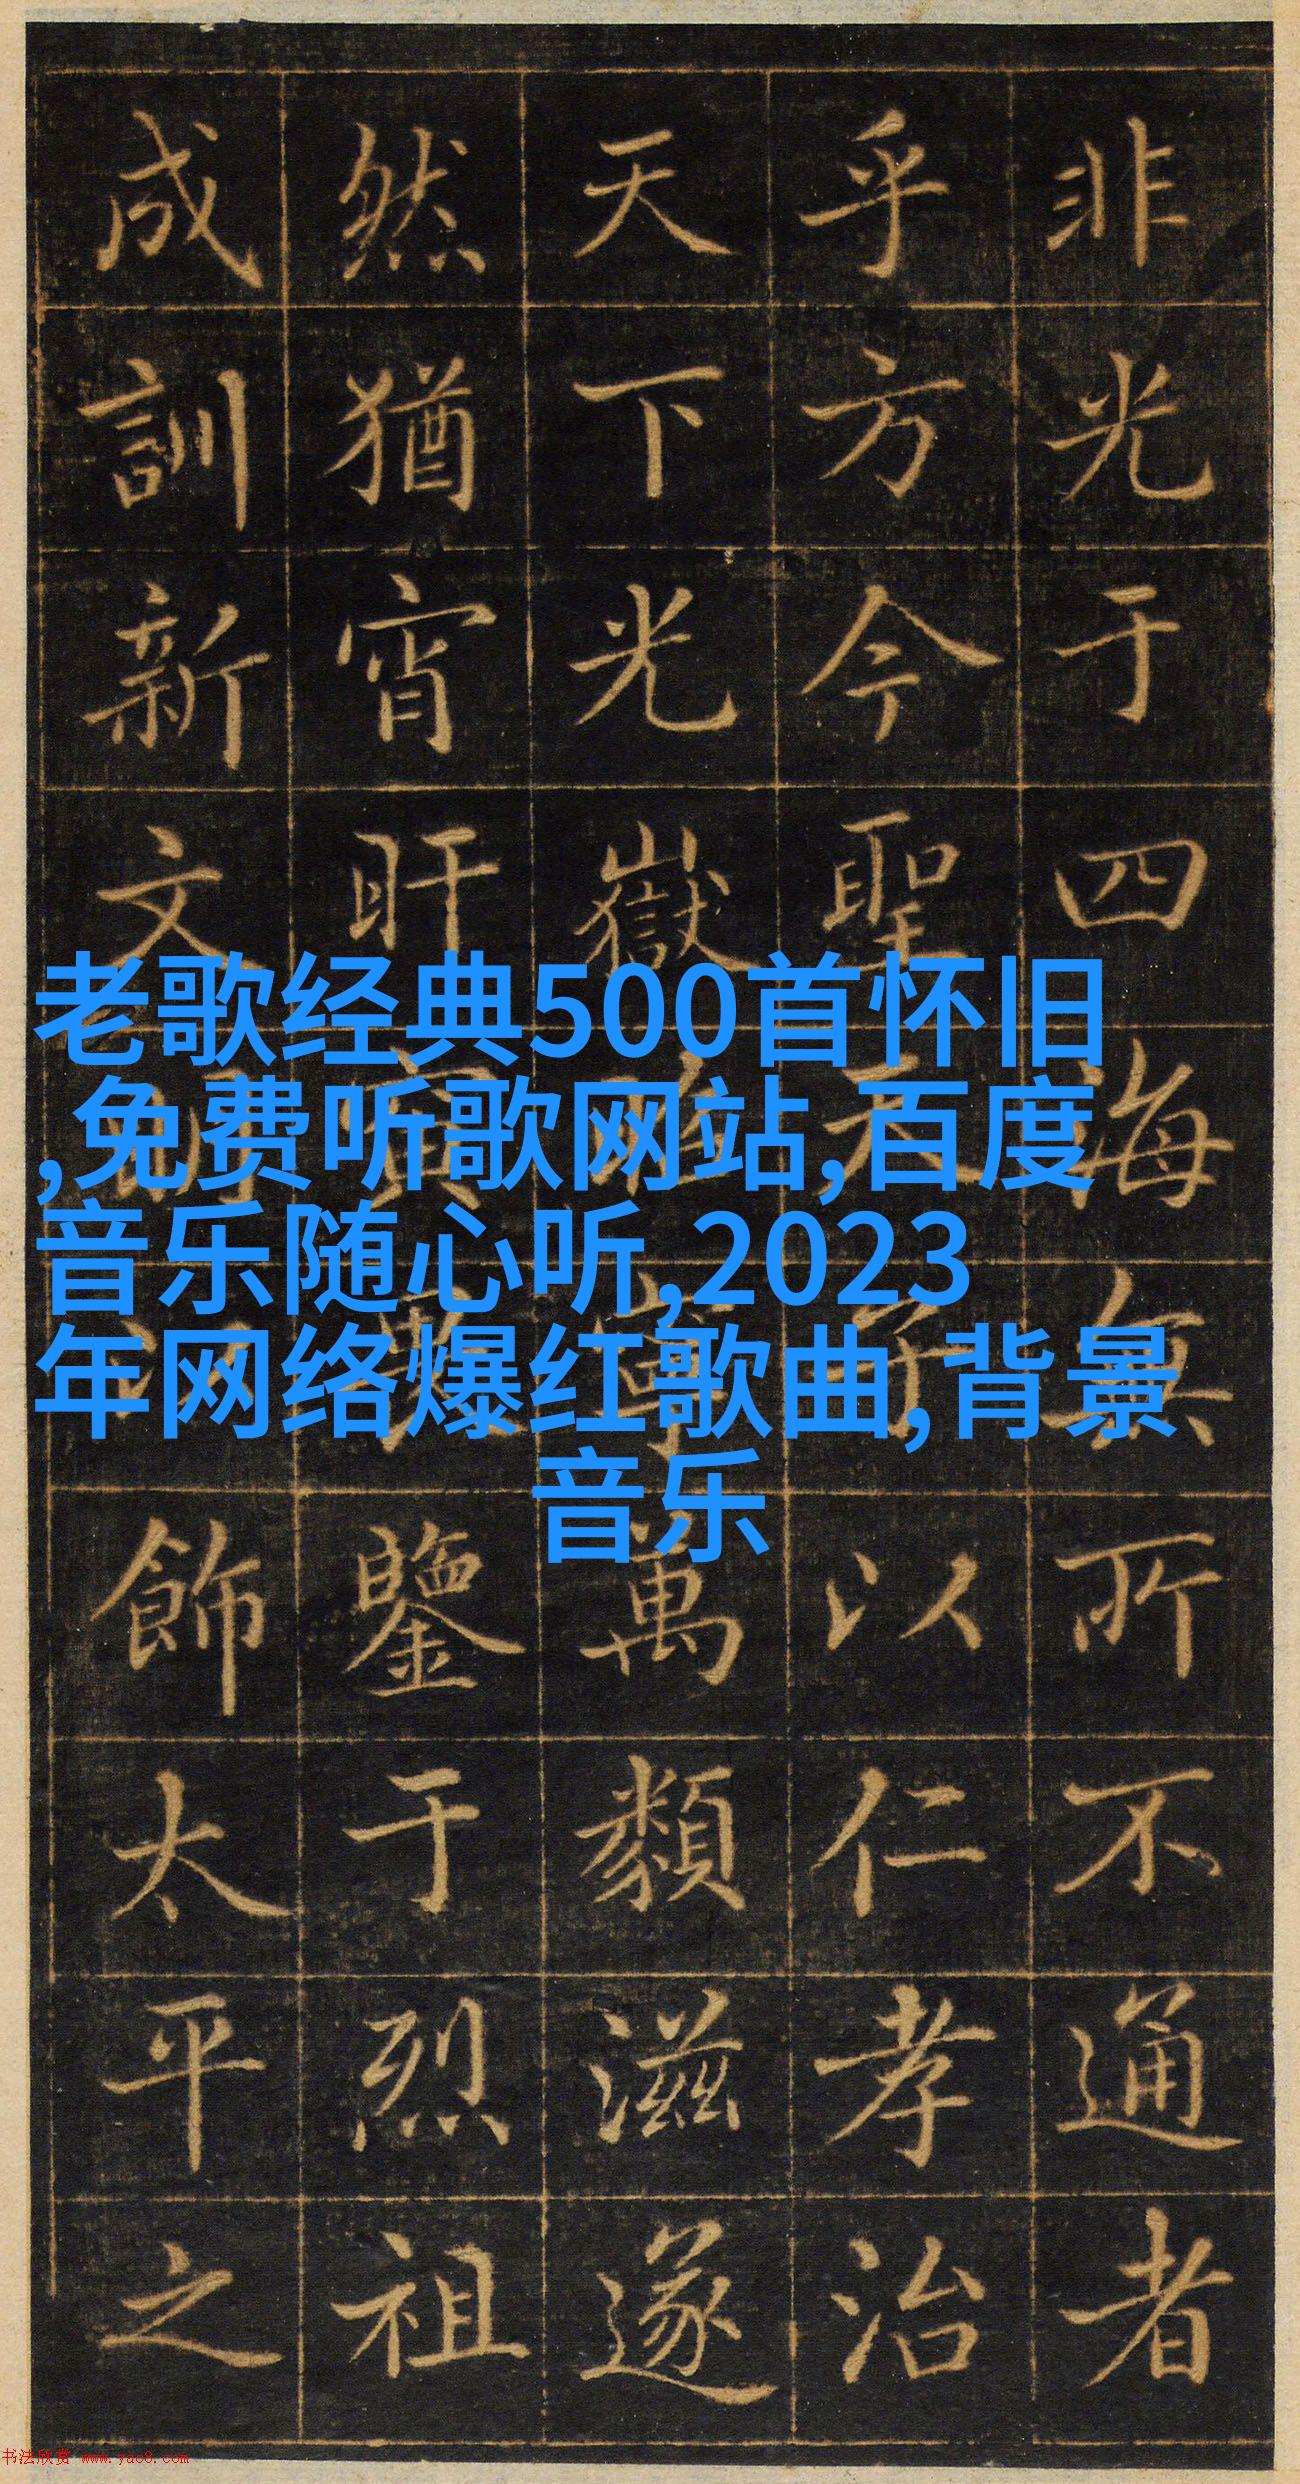 非光于四海無所不通者
乎方今聖天子以仁孝治
天下光嶽寧萬類滋遂
然猶宵旰寅畏鑒于烈祖
成訓新文飾太平之
老歌经典500首怀旧
,免费听歌网站,百度
音乐随心听,2023
年网络爆红歌曲,背景
音乐
书法欣赏 www.yac8.com